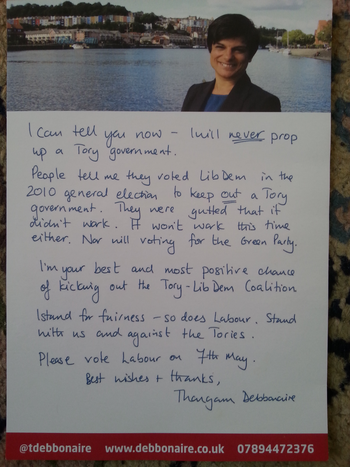 I can tell you now – I will never prop
up a Tory government.
People tell me they voted Lib Dem in the
2010 general election to keep out a Tory
government. They were gutted that it
didn't work. It won't work this time
either. Nor will voting for the Green Party.
I'm your best and most positive chance
of kicking out the Tory-Lib Dem Coalition
I stand for fairness – so does Labour. Stand
with us and against the Tories.
Please vote Labour on 7th May.
Best wishes + thanks,
Thangam Debbonaire
@tdebbonaire www.debbonaire.co.uk 07894472376